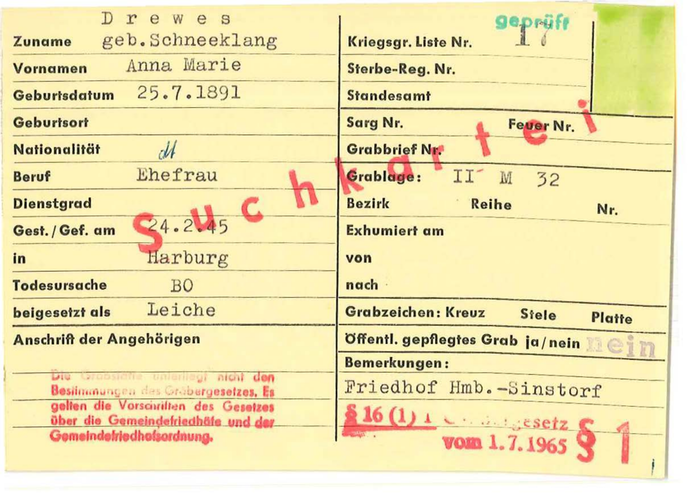 D r e w e s
Zuname geb.Schneeklang
Vornamen Anna Marie
Geburtsdatum 25.7.1891
Geburtsort
Nationalität dt
Beruf Ehefrau
Dienstgrad
Gest./Gef. am 24.2.45
in Harburg
Todesursache BO
beigesetzt als Leiche
Anschrift der Angehörigen
Die Grabstätte unterliegt nicht den
Bestimmungen des Gräbergesetzes. Es
gelten die Vorschriften des Gesetzes
über die Gemeindefriedhöfe und der
Gemeindefriedhofsordnung.
Suchkartei
geprüft
Kriegsgr. Liste Nr. 17
Sterbe-Reg. Nr.
Standesamt
Sarg Nr. Feuer Nr.
Grabbrief Nr.
Grablage: II M 32
Bezirk Reihe Nr.
Exhumiert am
von
nach
Grabzeichen: Kreuz Stele Platte
Öffentl. gepflegtes Grab ja/nein nein
Bemerkungen:
Friedhof Hmb.-Sinstorf
§ 16 (1) 1 gesetz
vom 1.7.1965 § 1